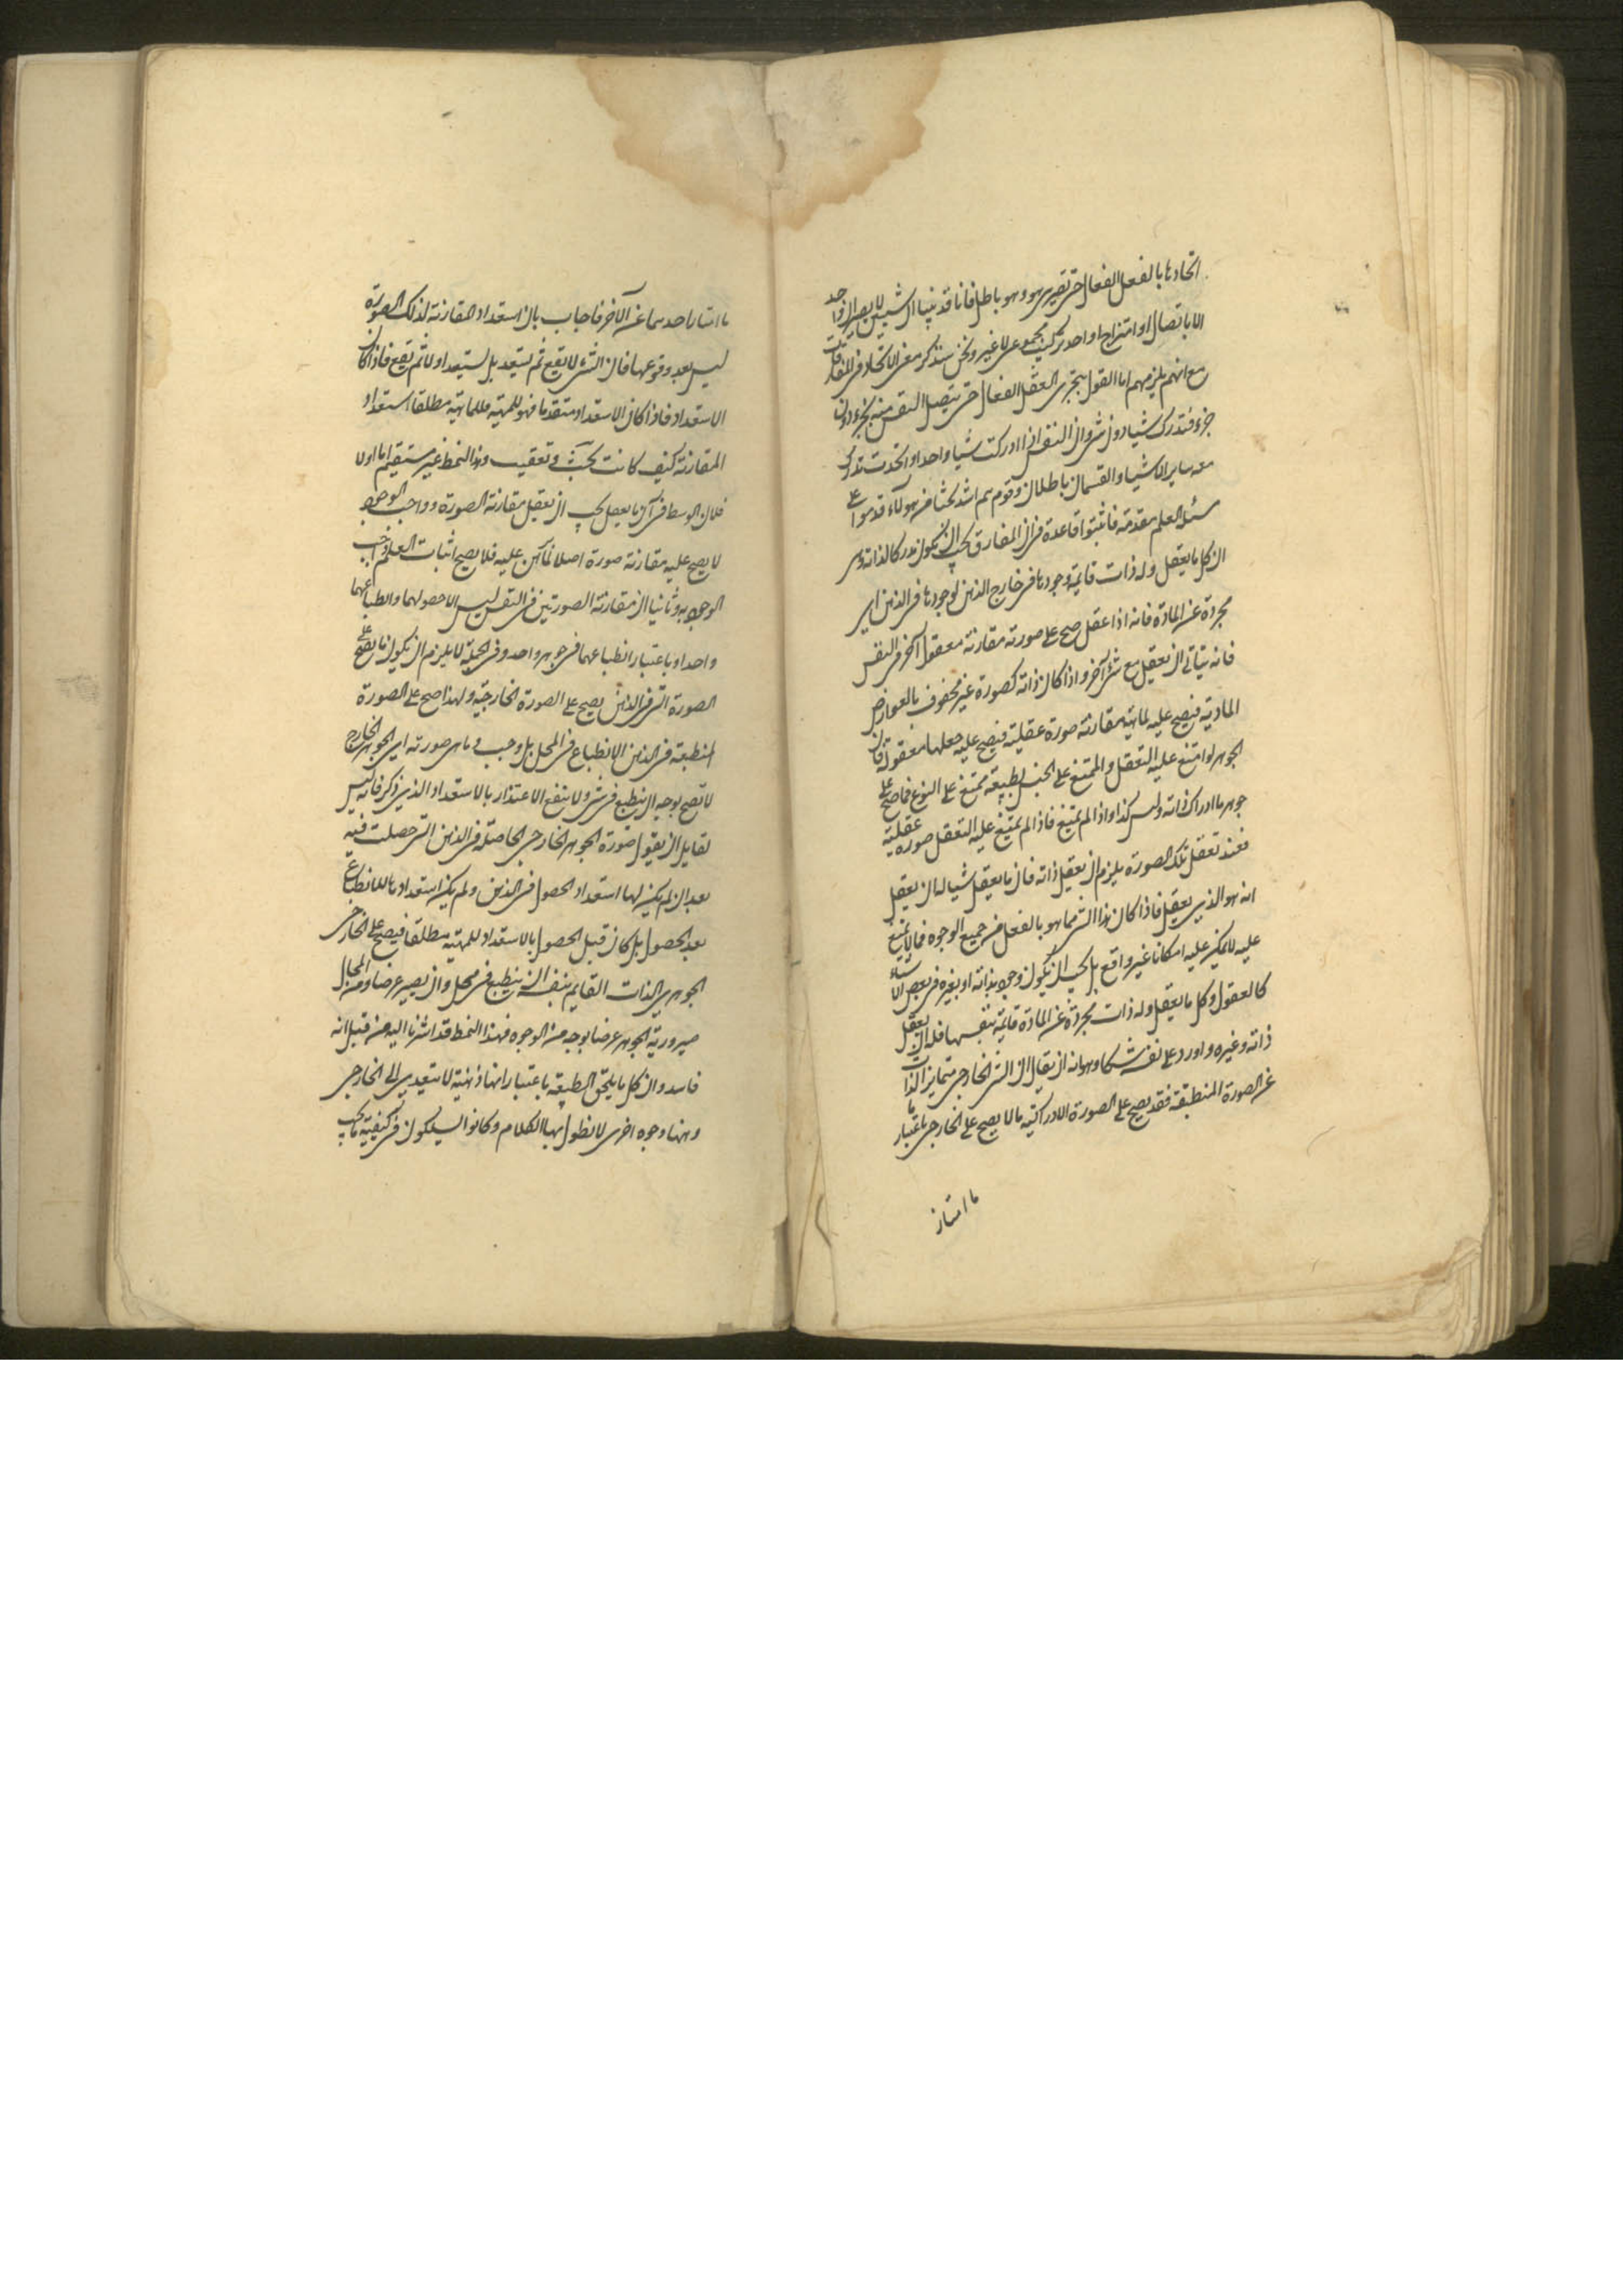 اتحادها بالفعل الفعال حتى تصير هو وهو باطل فانا قد بينا ان شيئين لا يصيران واحد
الا باتصال او امتزاج او احد تركيب مجموعى لا غير ونحن سنذكر معنى الاتحاد فى المفارقات
مع انهم يلزمهم اما القول بتجزى العقل الفعال حتى يتصل النفس منه بجزء دون
جزء فتدرك شيا دون شى وان النفس اذا ادركت شيا واحدا واتحدت تدرك
معه ساير الاشيا والقسمان باطلان وقوم هم اشد بحثا من هولاء قدموا على
مسئلة العلم مقدمة فاثبتوا قاعدة فى ان المفارق يجب ان يكون مدركا لذاته وهى
ان كل ما يعقل وله ذات قايمة وجودها فى خارج الذهن كوجودها فى الذهن اى
مجردة عن المادة فانه اذا عقل صح على صورته مقارنة معقول آخر فى النفس
فانه يتاتى ان يعقل مع شى آخر واذا كان ذاته كصورة غير محفوف بالعوارض
المادية فيصح عليه لماهيته مقارنة صورة عقلية فيصح عليه جعلها معقولة فان
الجوهر لو امتنع عليه التعقل والممتنع على الجنس لطبيعته ممتنع على النوع فما صح على
جوهر ما ادراك ذاته وليس كذا واذا لم يمتنع فاذا لم يمتنع عليه التعقل صورة عقلية
فعند تعقل تلك الصورة يلزم ان يعقل ذاته فان ما يعقل شيا له ان يعقل
انه هو الذى يعقل فاذا كان هذا الشى مما هو بالفعل من جميع الوجوه فما لا يمتنع
عليه لا يمكن عليه امكانا غير واقع بل يجب ان يكون وجوبه بذاته او بغيره فى بعض الاشياء
كالعقول وكل ما يعقل وله ذات مجردة عن المادة قايمة بنفسها فله ان يعقل
ذاته وغيره واورد على نفسه شكا وهو انه ان يقال ان الشى الخارجى متمايز الذات
عن الصورة المنطبعة فقد يصح على الصورة الادراكية ما لا يصح على الخارجى باعتبار ما
ما امتاز
ما امتاز احدهما عن الآخر فاجاب بان استعداد المقارنة لذلك الصورة
ليس بعد وقوعها فان الشى لا يقع ثم يستعد بل يستعد اولا ثم يقع فاذا كان
الاستعداد فاذا كان الاستعداد متقدما فهو للمهية فللماهية مطلقا استعداد
المقارنة كيف كانت بحث وتعقيب وهذا النمط غير مستقيم اما اولا
فلان الوسط فى آن ما يعقل يجب ان يعقل مقارنة الصورة وواجب الوجود
لا يصح عليه مقارنة صورة اصلا لما تبين عليه فلا يصح اثبات العلم فى واجب
الوجود به وثانيا ان مقارنة الصورتين فى النفس ليس الا حصولهما وانطباعهما
واحدا وباعتبار انطباعهما فى جوهر واحد وفى الجملة لا يلزم ان يكون ما يصح على
الصورة التى فى الذهن يصح على الصورة الخارجية ولهذا صح على الصورة
المنطبعة فى الذهن الانطباع فى المحل بل وجب وما هى صورته اى الجوهر الخارجى
لا تصح بوجه ان ينطبع فى شى ولا ينفع الاعتذار بالاستعداد الذى ذكر فانه ليس
لقايل ان يقول صورة الجوهر الخارجى الحاصلة فى الذهن التى حصلت فيه
بعد ان لم يكن لها استعداد الحصول فى الذهن ولم يكن استعدادها للانطباع
بعد الحصول بل كان قبل الحصول بالاستعداد للمهية مطلقا فيصح على الخارجى
الجوهرى الذات القايم بنفسه ان ينطبع فى محل وان يصير عرضا ومن المحال
صيرورية الجوهر عرضا بوجه من الوجوه فهذا النمط قد اشرنا اليه من قبل انه
فاسد وان كل ما يلحق الطبيعة باعتبار انها ذهنية لا يتعدى الى الخارجى
وههنا وجوه اخرى لا نطول بها الكلام وكانوا يسلكون فى كيفية ما يجب